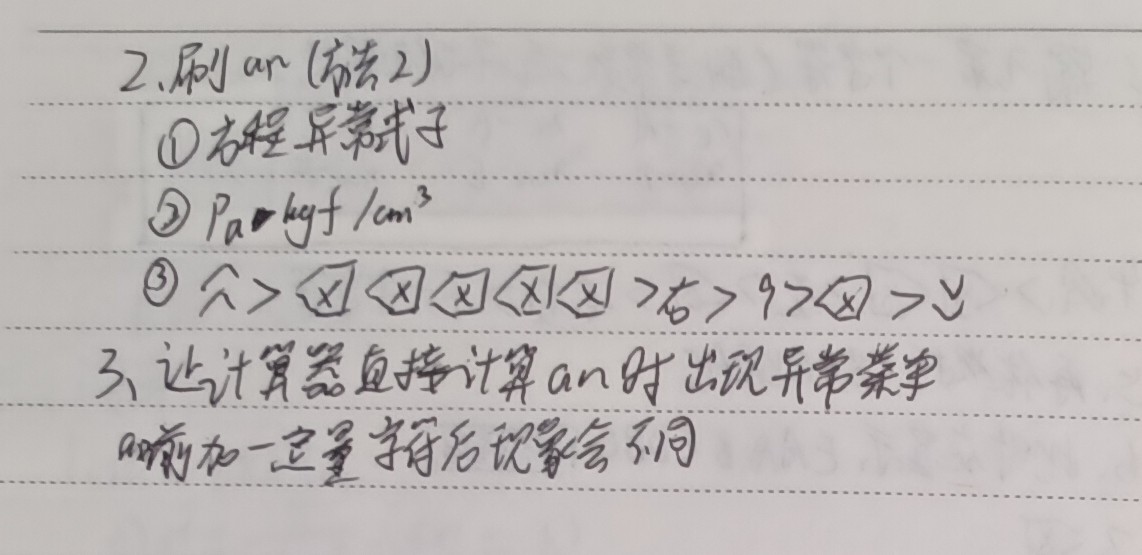 2、刷an (方法2)
①方程异常式子
② Pa▸kgf/cm³
③ ︿> ⌫ ⌫ ⌫ ⌫ ⌫ >右> 9 > ⌫ >﹀
3、让计算器直接计算an时出现异常菜单
an前加一定量字符后现象会不同